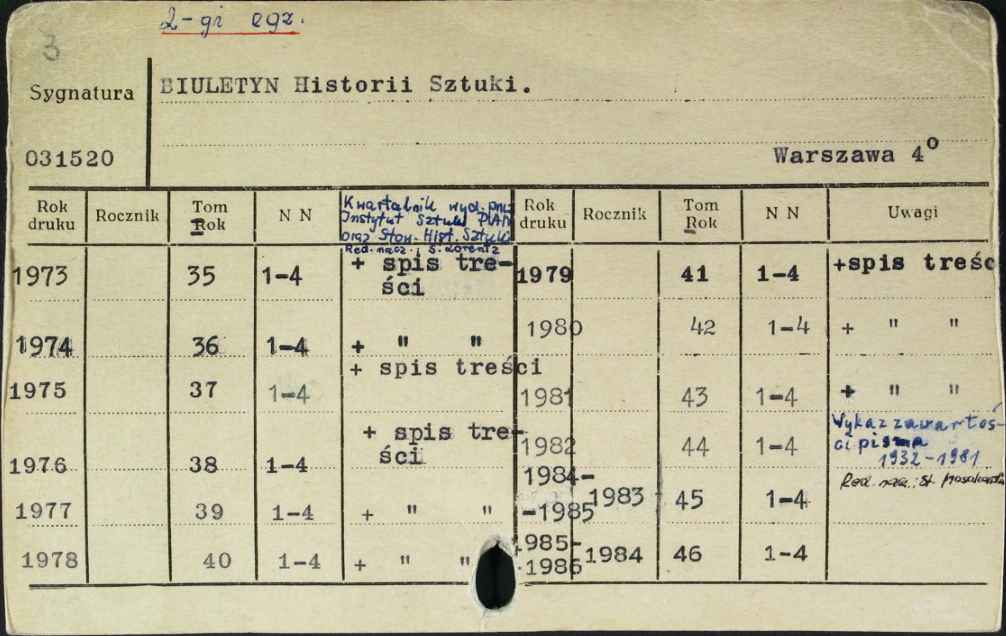 3
2-gi egz.
Sygnatura
BIULETYN Historii Sztuki.
031520
Warszawa 4o
Rok druku Rocznik Tom Rok N N
Kwartalnik wyd. przez
Instytut Sztuki PAN
oraz Stow. Hist. Sztuki
Red. nacz.: S. Lorentz
Rok druku Rocznik Tom Rok N N Uwagi
1973 35 1-4 + spis tre-
ści
1974 36 1-4 + " "
1975 37 1-4 + spis treści
1976 38 1-4 + spis tre-
ści
1977 39 1-4 + " "
1978 40 1-4 + " "
1979 41 1-4 +spis treśc
1980 42 1-4 + " "
1981 43 1-4 + " "
1982 44 1-4 Wykaz zawartoś-
ci pisma
1932-1981
Red. nacz.: St.
1984-
-1985 1983 45 1-4
1985-
-1986 1984 46 1-4